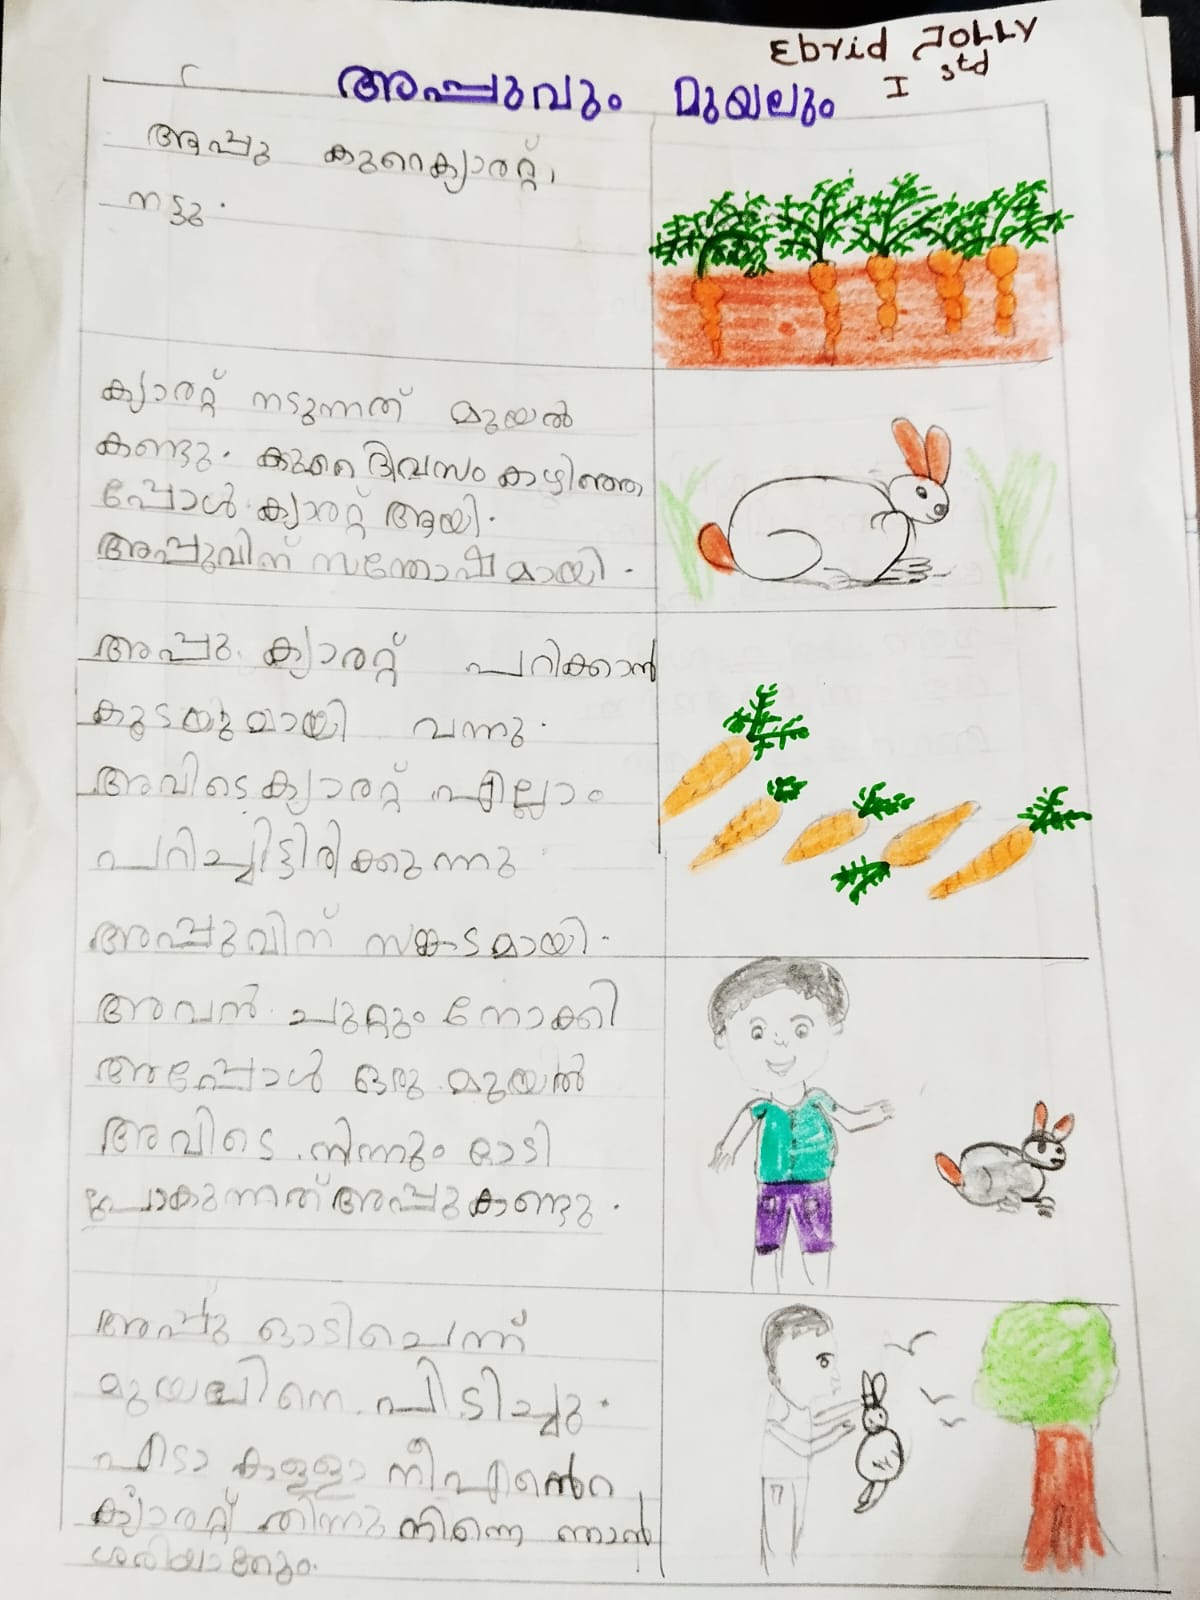 Ebrid JOLLY
I std
അപ്പുവും മുയലും
അപ്പു കുറെക്യാരറ്റ്
നട്ടു.
ക്യാരറ്റ് നടുന്നത് മുയൽ
കണ്ടു. കുറെ ദിവസം കഴിഞ്ഞ
പ്പോൾ ക്യാരറ്റ് ആയി.
അപ്പുവിന് സന്തോഷമായി.
അപ്പു ക്യാരറ്റ് പറിക്കാൻ
കൂടയുമായി വന്നു.
അവിടെ ക്യാരറ്റ് എല്ലാം
പറിച്ചിട്ടിരിക്കുന്നു
അപ്പുവിന് സങ്കടമായി.
അവൻ ചുറ്റും നോക്കി
അപ്പോൾ ഒരു മുയൽ
അവിടെ നിന്നും ഓടി
പോകുന്നത് അപ്പു കണ്ടു.
അപ്പു ഓടിചെന്ന്
മുയലിനെ പിടിച്ചു.
എടാ കള്ളാ നീ എൻെറ
ക്യാരറ്റ് തിന്നു നിന്നെ ഞാൻ
ശരിയാക്കും.